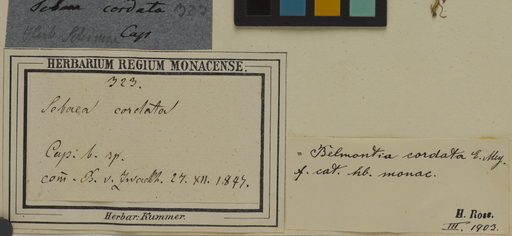 Sebaea cordata 323
Cap
HERBARIUM REGIUM MONACENSE.
323.
Sebaea cordata
Cap. b. sp.
27. XII. 1847.
Herbar. Kummer.
" Belmontia cordata E. Mey.
f. cat. hb. monac.
H. Ross.
III. 1903.